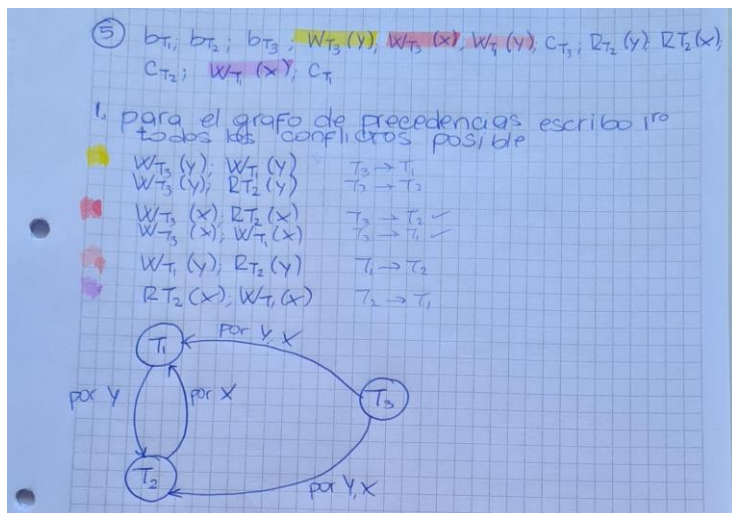 ⑤ bT₁; bT₂; bT₃; WT₃(Y); WT₃(X); WT₁(Y); CT₃; RT₂(Y); RT₂(X);
CT₂; WT₁(X); CT₁
1. para el grafo de precedencias escribo 1ro
todos los conflictos posible
WT₃(Y); WT₁(Y) T₃→T₁
WT₃(Y); RT₂(Y) T₃→T₂
WT₃(X); RT₂(X) T₃→T₂ ✓
WT₃(X); WT₁(X) T₃→T₁ ✓
WT₁(Y); RT₂(Y) T₁→T₂
RT₂(X); WT₁(X) T₂→T₁
por Y, X
T₁
por Y
por X
T₃
T₂
por Y, X